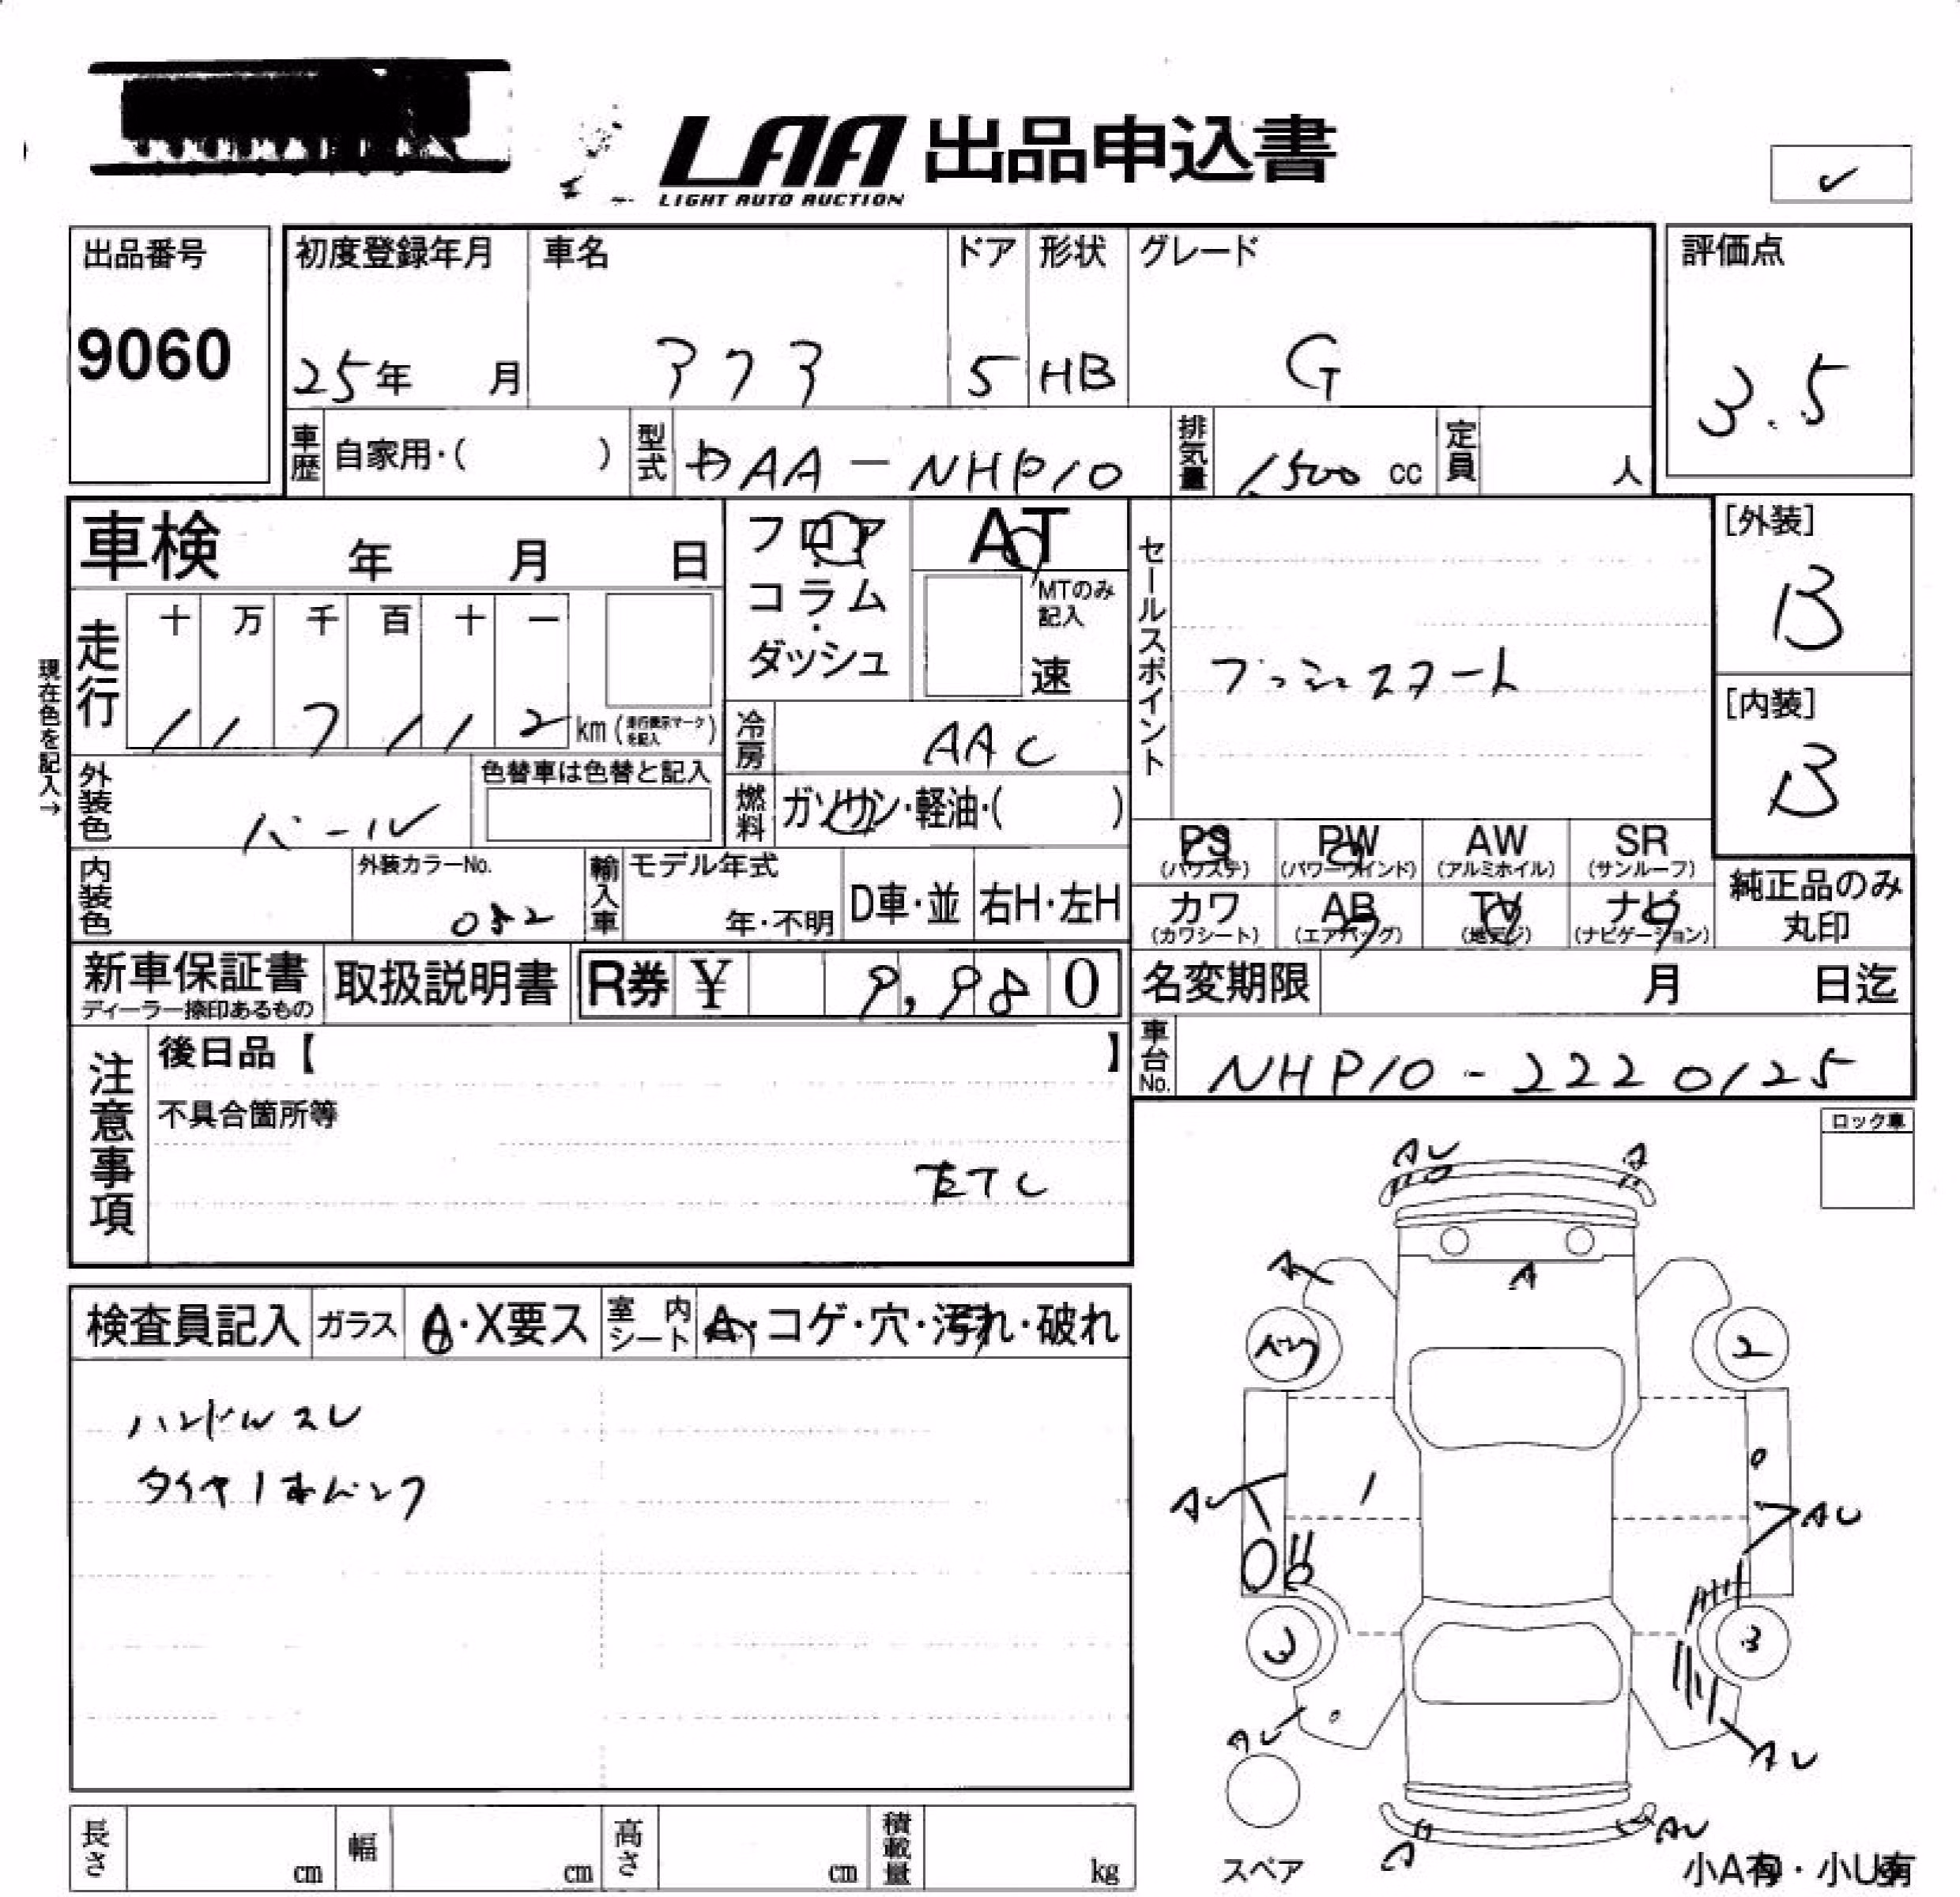 LAA 出品申込書
LIGHT AUTO AUCTION
出品番号
9060
初度登録年月
25年 月
車名
アクア
ドア
5
形状
HB
グレード
G
評価点
3.5
車歴 自家用・( )
型式 DAA-NHP10
排気量 1,500 cc
定員 人
車検 年 月 日
フロア・コラム・ダッシュ
AT
MTのみ記入
速
セールスポイント
プッシュスタート
[外装]
B
[内装]
B
現在色を記入→
走行 十 万 千 百 十 一
1 1 7 1 1 2 km (走行表示マークを記入)
冷房 AAC
外装色 パール
色替車は色替と記入
燃料 ガソリン・軽油・( )
PS (パワステ)
PW (パワーウインド)
AW (アルミホイル)
SR (サンルーフ)
内装色
外装カラーNo.
082
輸入車 モデル年式
年・不明
D車・並
右H・左H
カワ (カワシート)
AB (エアバッグ)
TV (地デジ)
ナビ (ナビゲーション)
純正品のみ丸印
新車保証書
ディーラー捺印あるもの
取扱説明書
R券 ¥ 9,980
名変期限 月 日迄
注意事項
後日品【 】
不具合箇所等
ETC
車台No. NHP10-2220125
ロック車
検査員記入
ガラス A・X要ス
室内シート A・コゲ・穴・汚れ・破れ
ハンドルスレ
タイヤ1本パンク
AU
A
A
A
パンク
2
AU
AU
3
3
AU
AU
A
AU
スペア
小A有・小U有
長さ cm
幅 cm
高さ cm
積載量 kg